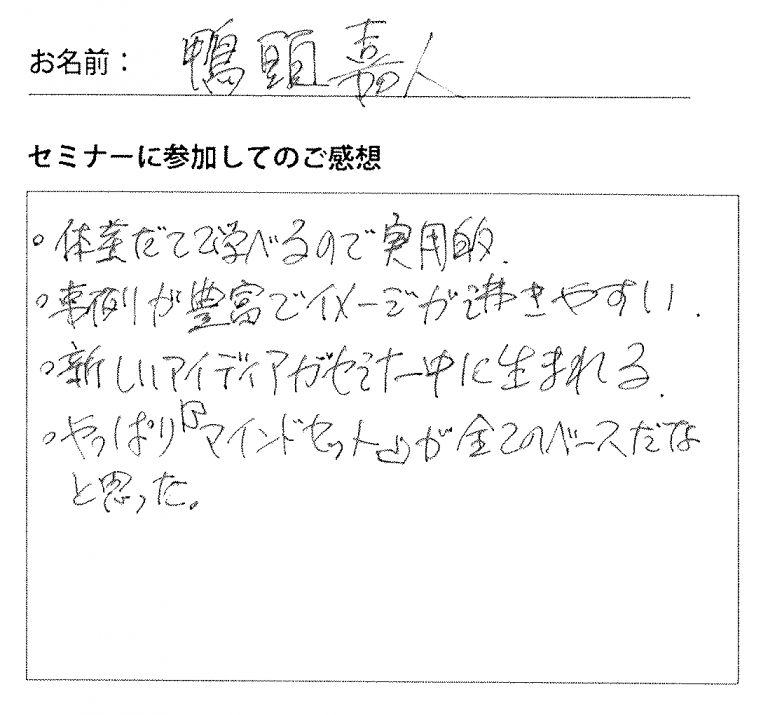 お名前： 鴨頭嘉人
セミナーに参加してのご感想
。体系だてて学べるので実用的.
。事例が豊富でイメージが沸きやすい.
。新しいアイディアがセミナー中に生まれる.
。やっぱり『マインドセット』が全てのベースだな
と思った。